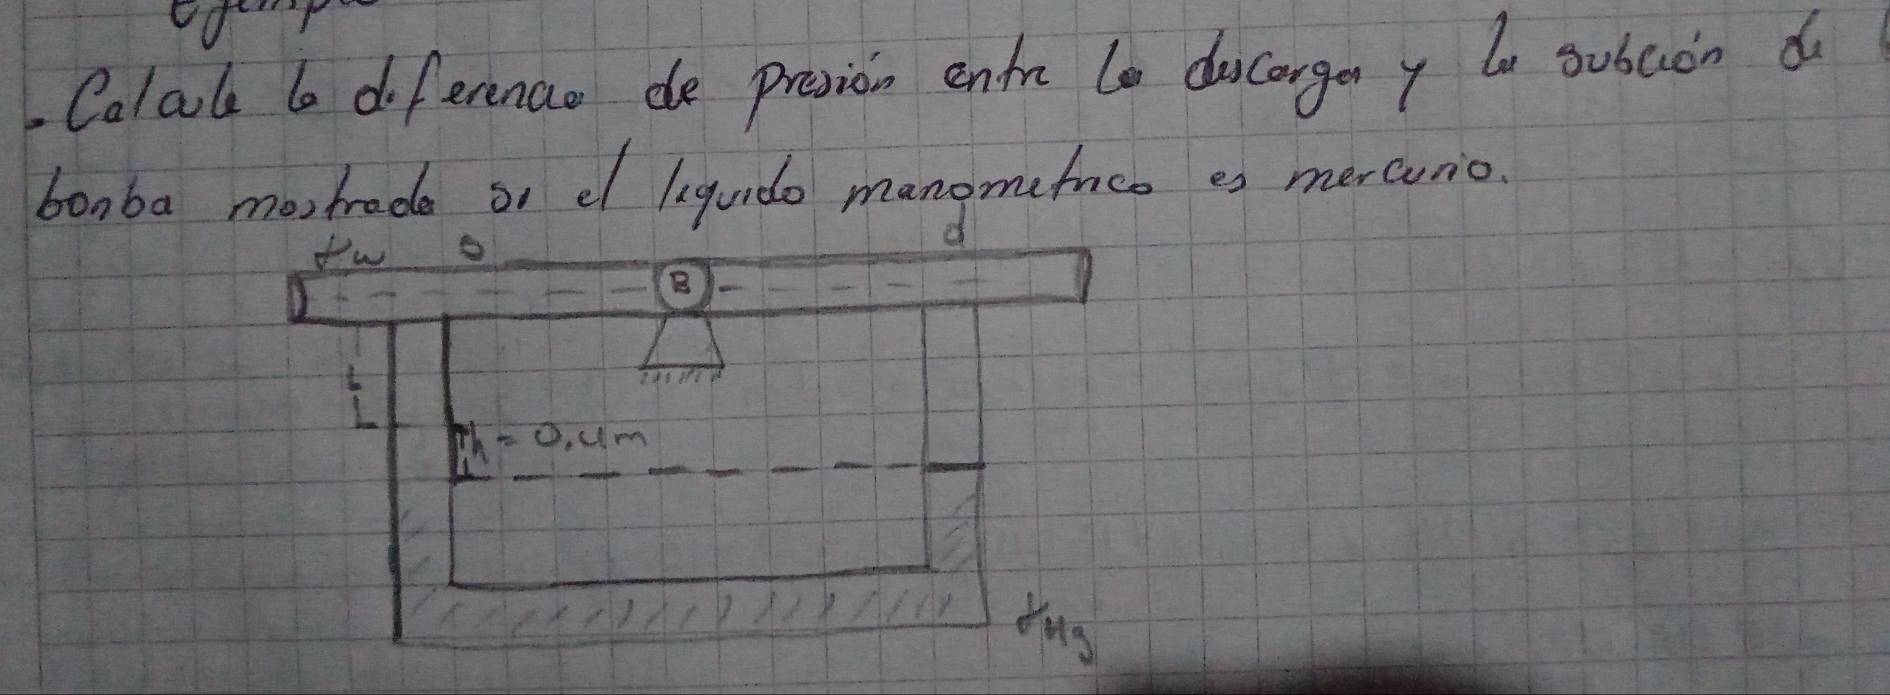 Ejemp
- Calcule la diferencia de presión entre la descarga y la subción de
bonba mostrada si el liquido manometrico es mercurio.
γw s d
B
L
h = 0.4m
γHg